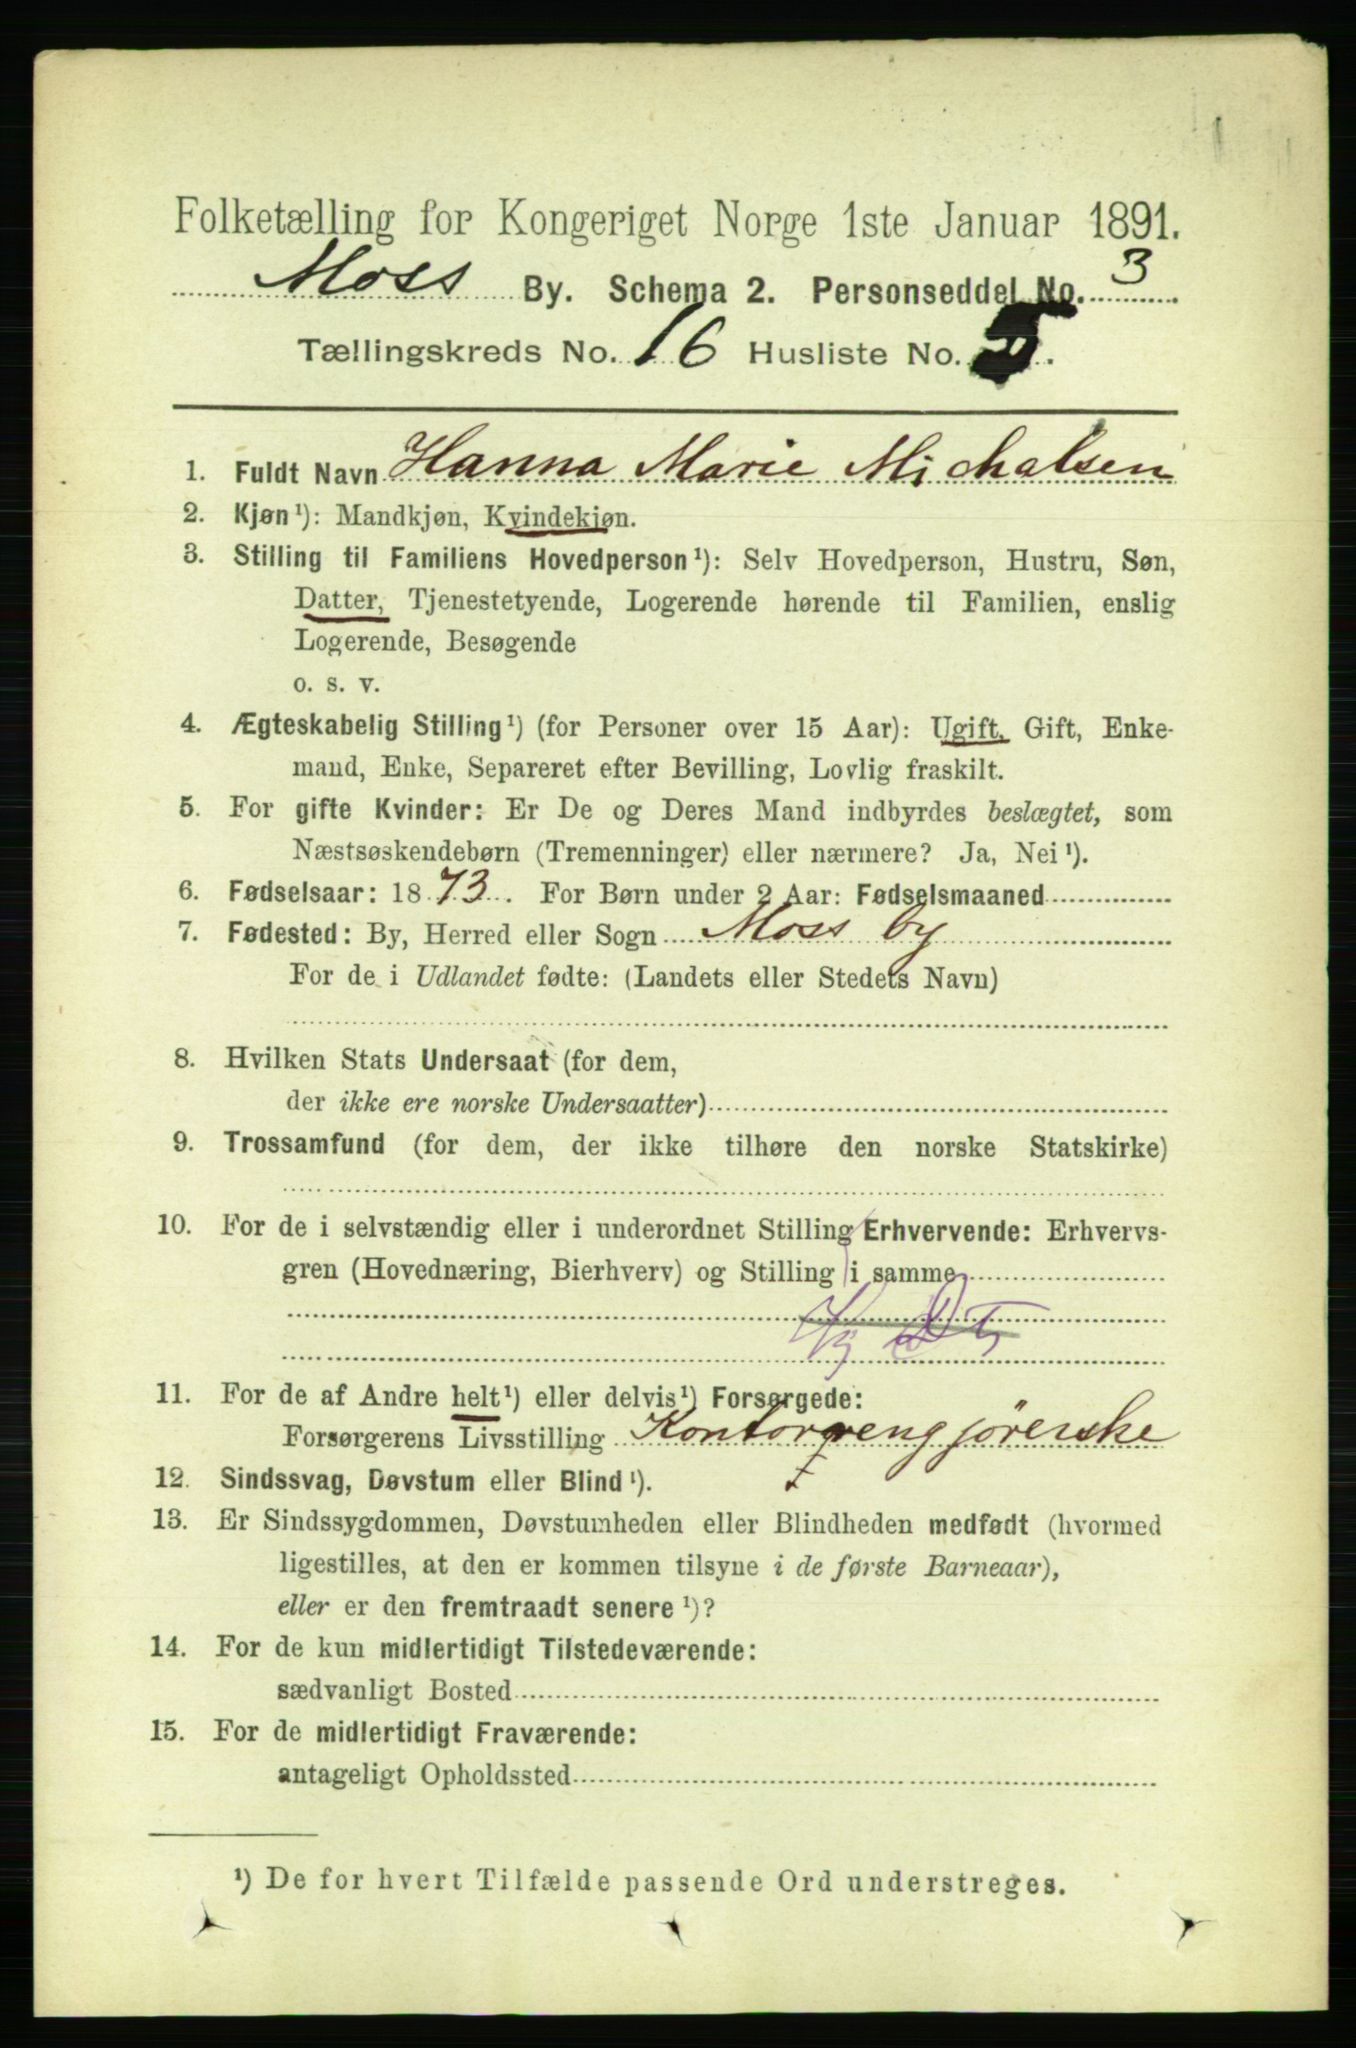 Folketælling for Kongeriget Norge 1ste Januar 1891.
Moss By. Schema 2. Personseddel No. 3
Tællingskreds No. 16 Husliste No. 5.
1. Fuldt Navn Hanna Marie Michalsen
2. Kjøn¹): Mandkjøn, Kvindekjøn.
3. Stilling til Familiens Hovedperson¹): Selv Hovedperson, Hustru, Søn,
Datter, Tjenestetyende, Logerende hørende til Familien, enslig
Logerende, Besøgende
o. s. v.
4. Ægteskabelig Stilling¹) (for Personer over 15 Aar): Ugift, Gift, Enke-
mand, Enke, Separeret efter Bevilling, Lovlig fraskilt.
5. For gifte Kvinder: Er De og Deres Mand indbyrdes beslægtet, som
Næstsøskendebørn (Tremenninger) eller nærmere? Ja, Nei¹).
6. Fødselsaar: 1873. For Børn under 2 Aar: Fødselsmaaned
7. Fødested: By, Herred eller Sogn Moss by
For de i Udlandet fødte: (Landets eller Stedets Navn)
8. Hvilken Stats Undersaat (for dem,
der ikke ere norske Undersaatter)
9. Trossamfund (for dem, der ikke tilhøre den norske Statskirke)
10. For de i selvstændig eller i underordnet Stilling Erhvervende: Erhvervs-
gren (Hovednæring, Bierhverv) og Stilling i samme
11. For de af Andre helt¹) eller delvis¹) Forsørgede:
Forsørgerens Livsstilling Kontorrengjörerske
12. Sindssvag, Døvstum eller Blind¹).
13. Er Sindssygdommen, Døvstumheden eller Blindheden medfødt (hvormed
ligestilles, at den er kommen tilsyne i de første Barneaar),
eller er den fremtraadt senere¹)?
14. For de kun midlertidigt Tilstedeværende:
sædvanligt Bosted
15. For de midlertidigt Fraværende:
antageligt Opholdssted
¹) De for hvert Tilfælde passende Ord understreges.